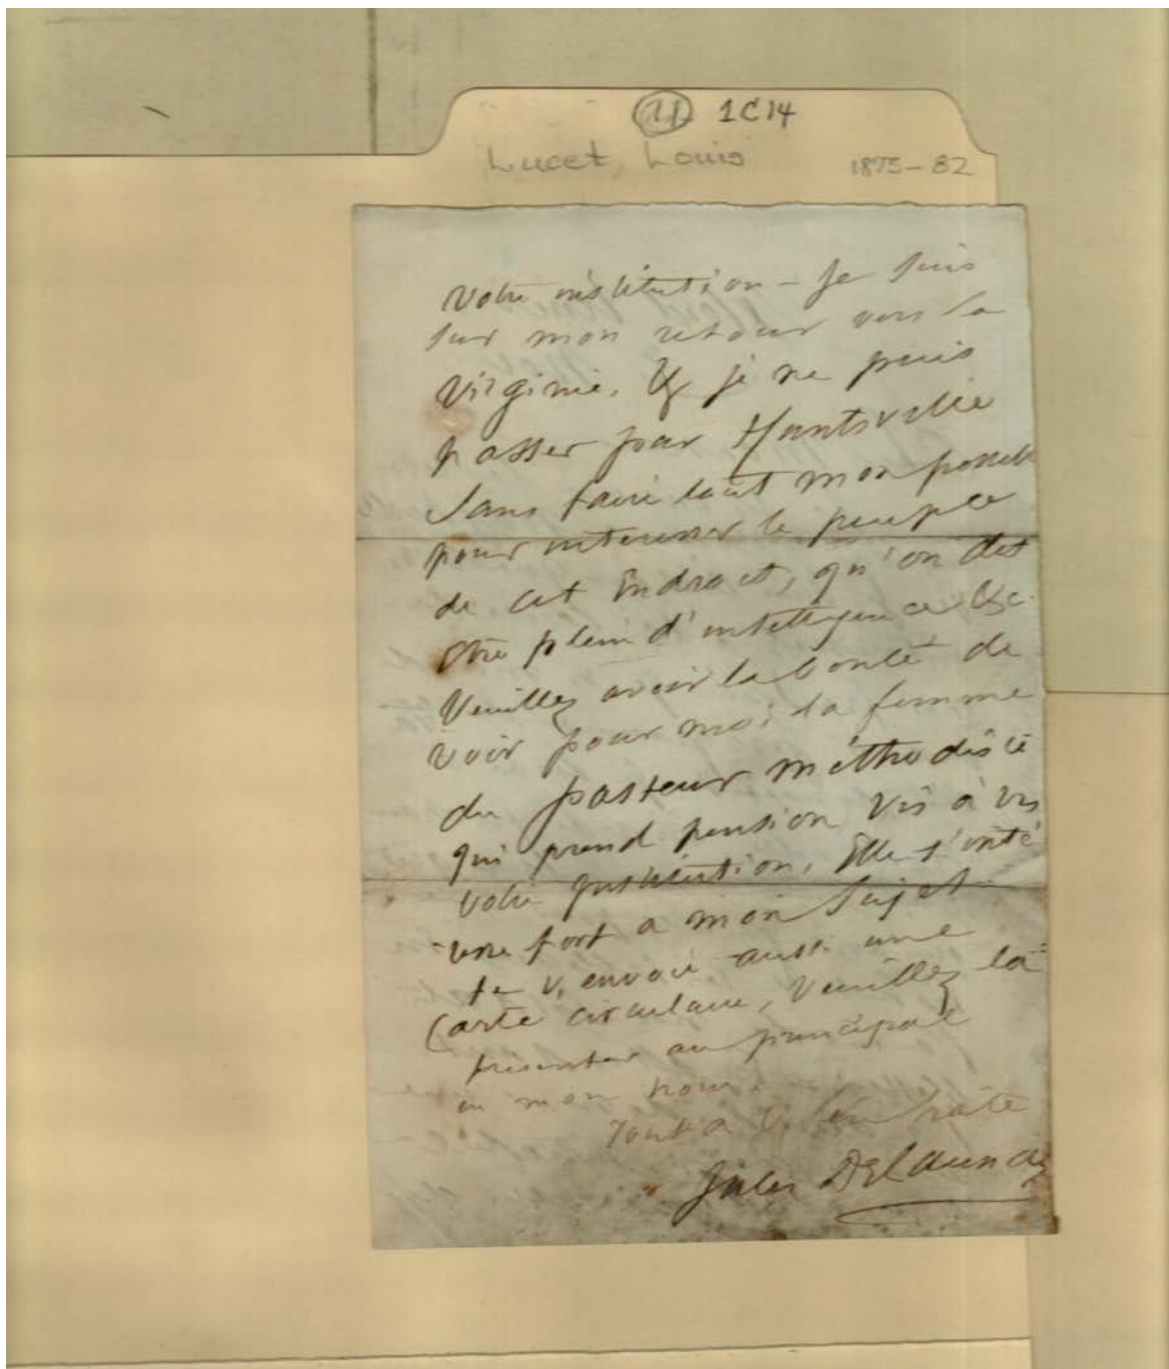 1C14
Lucet, Louis 1875-82
Votre institution - Je suis
sur mon retour vers la
Virginie, & je ne puis
passer par Huntsville
sans faire tout mon possible
pour interesser le peuple
de cet Endroit, qu'on dit
être plein d'intelligence &c.
Veuillez avoir la bonté de
voir pour moi la femme
du pasteur méthodiste
qui prend pension vis à vis
votre Institution, Elle s'inté
fort a mon Sujet
Je v. envoie aussi une
Carte circulaire, Veuillez la
présenter au principal
en mon nom.
Tout a V. en hate
Jules Delaunay